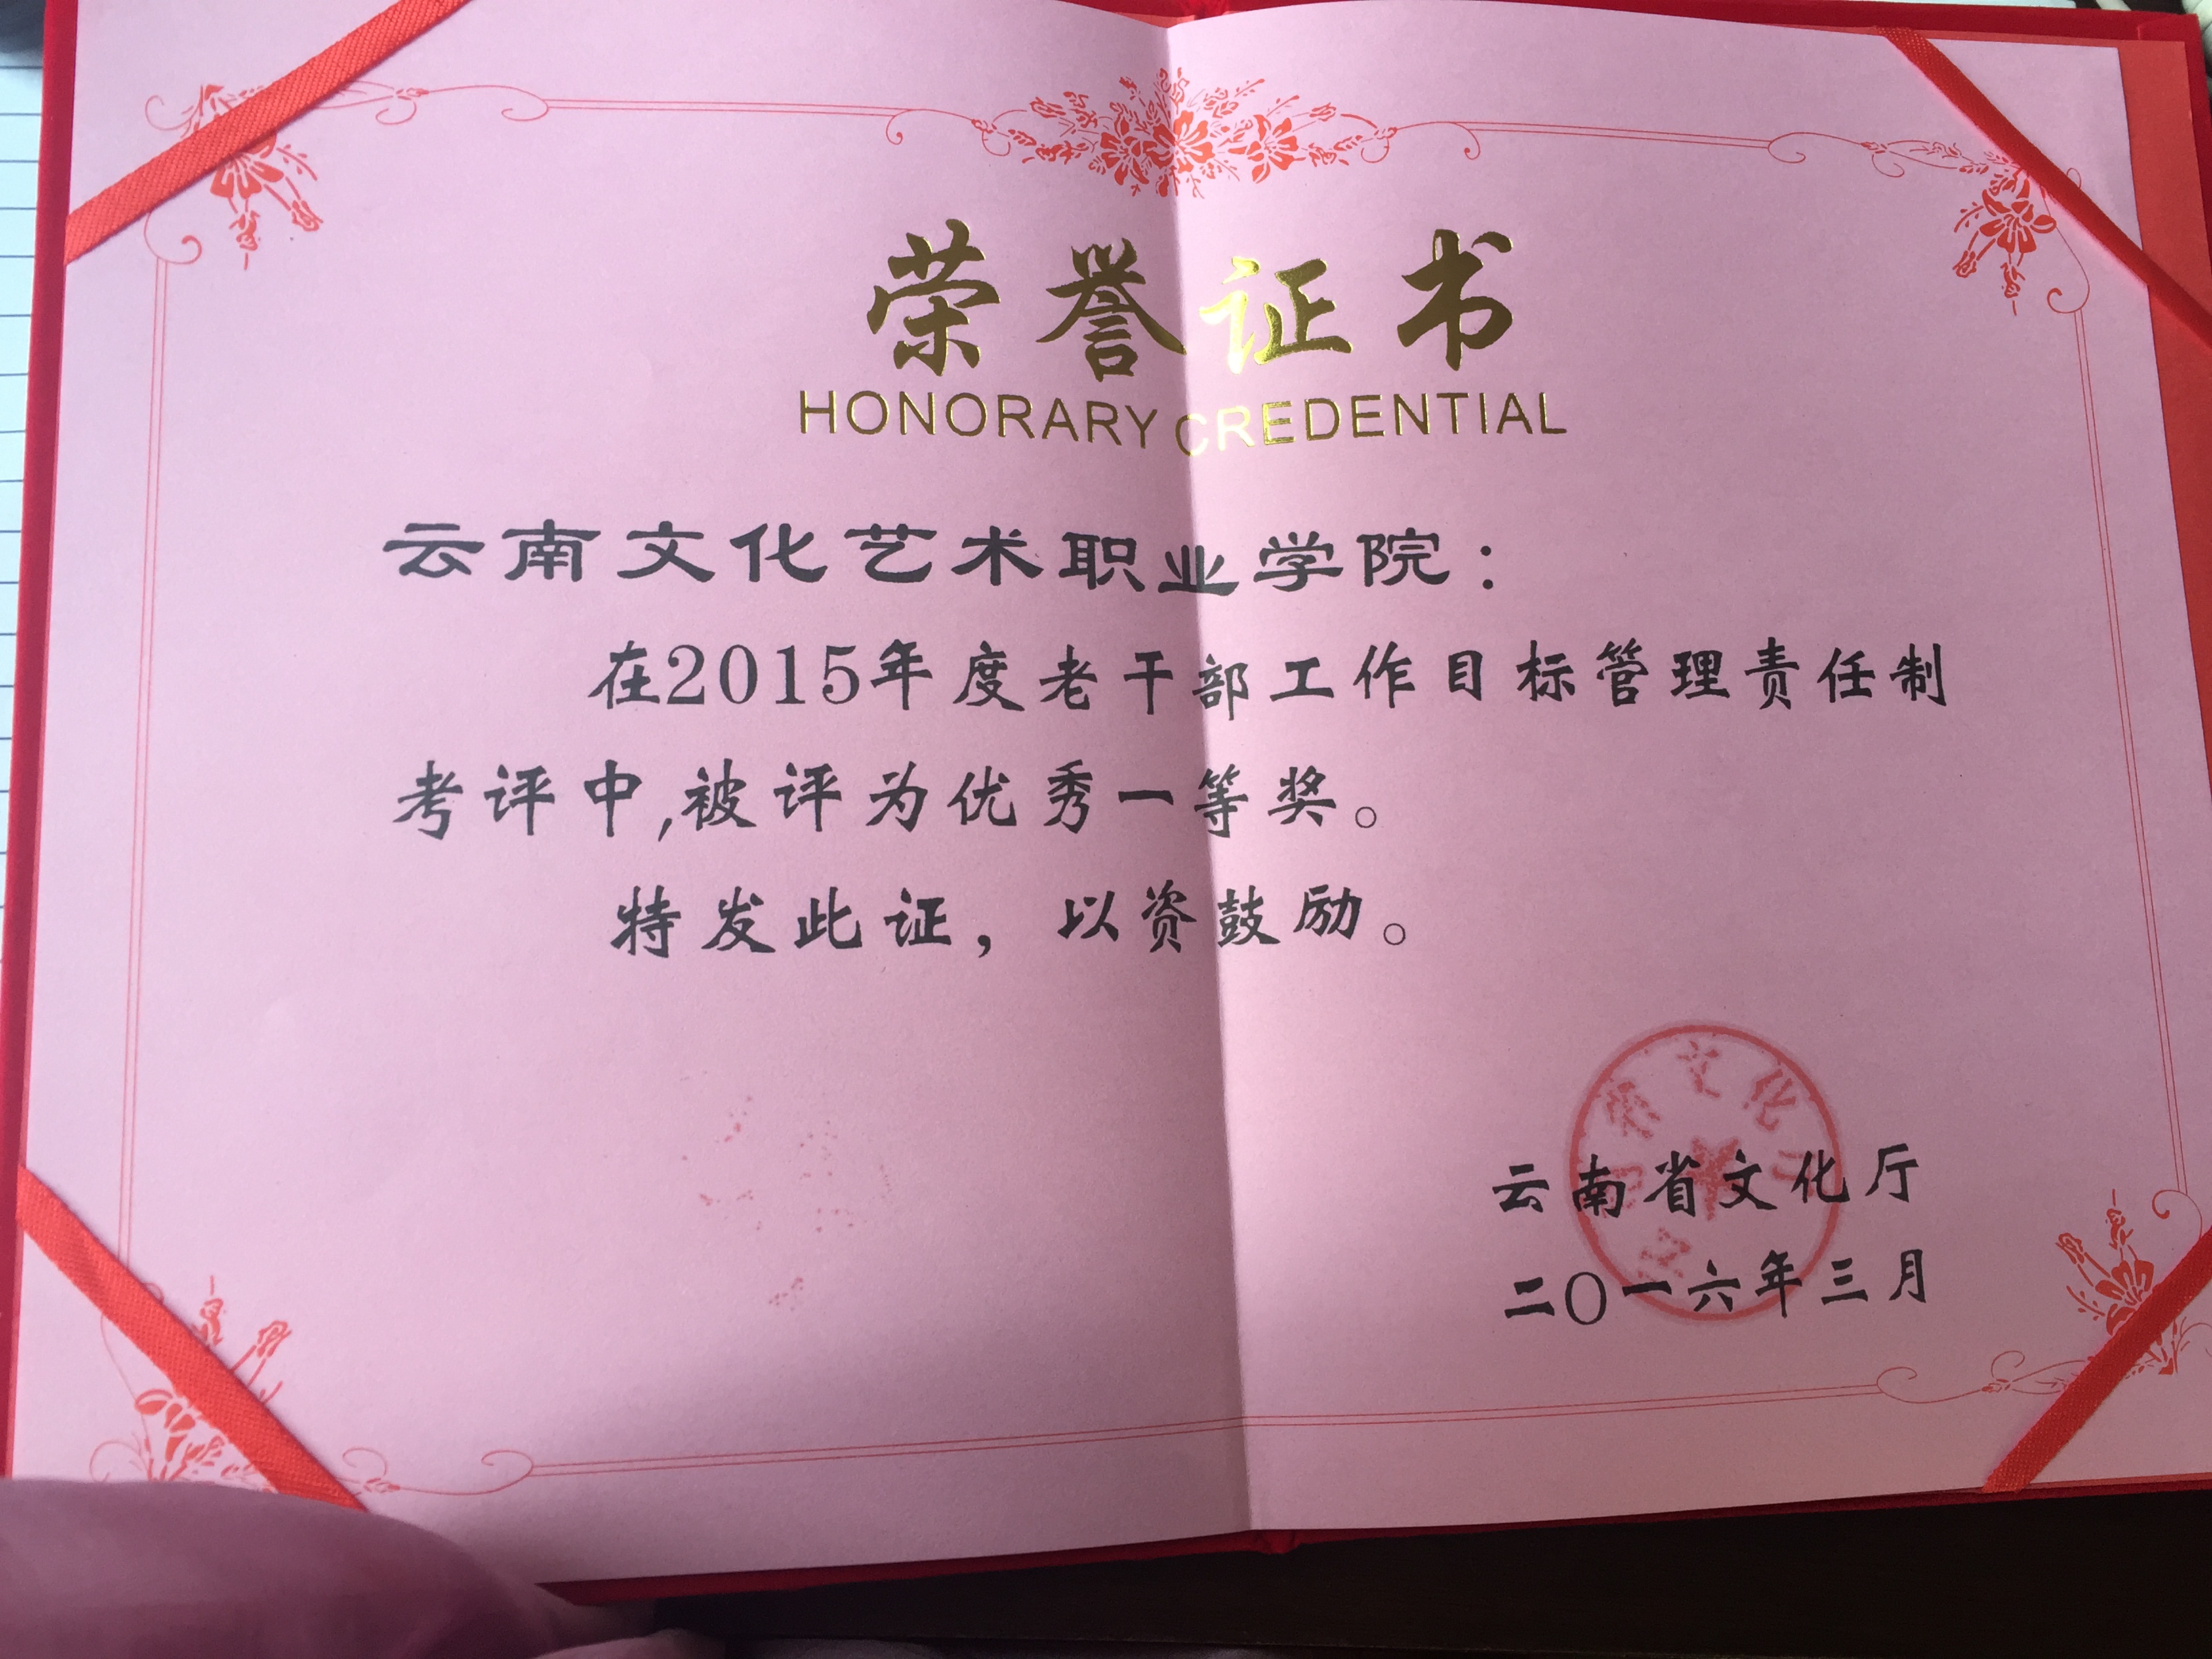 荣誉证书
HONORARY CREDENTIAL
云南文化艺术职业学院：
在2015年度老干部工作目标管理责任制
考评中,被评为优秀一等奖。
特发此证，以资鼓励。
文化
云南省文化厅
二〇一六年三月